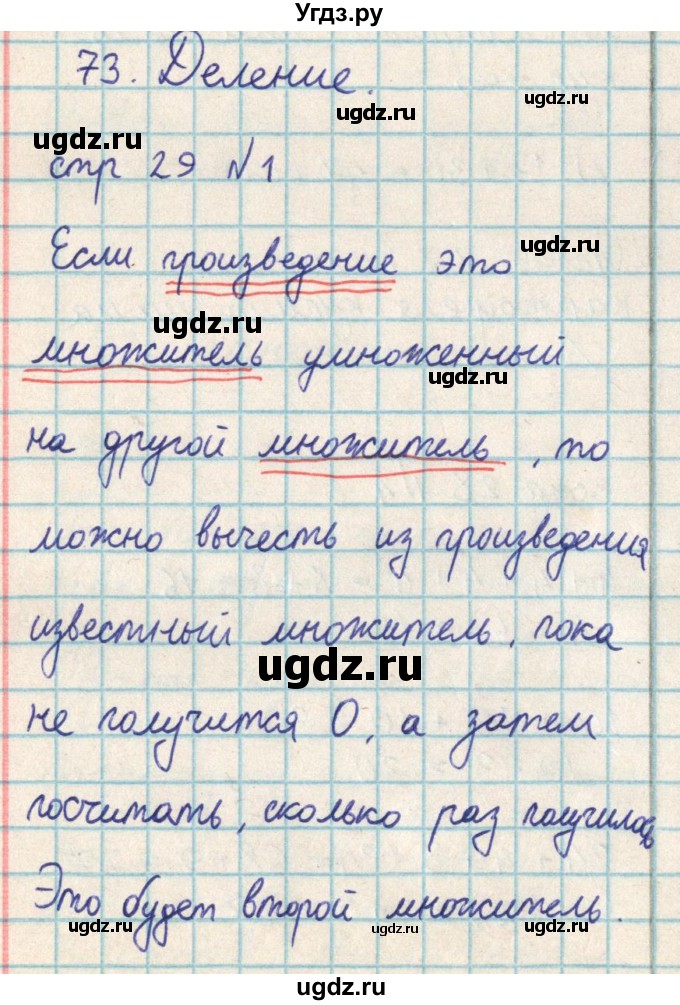 Угдз.ру
73. Деление.
ugdz.ru
ugdz.ru
ugdz.ru
стр 29 №1
Если произведение это
ugdz.ru
ugdz.ru
множитель умноженный
ugdz.ru
на другой множитель, то
можно вычесть из произведения
известный множитель, пока
ugdz.ru
не получится 0, а затем
посчитать, сколько раз получилось
Это будет второй множитель.
ugdz.ru
ugdz.ru
ugdz.ru
ugdz.ru